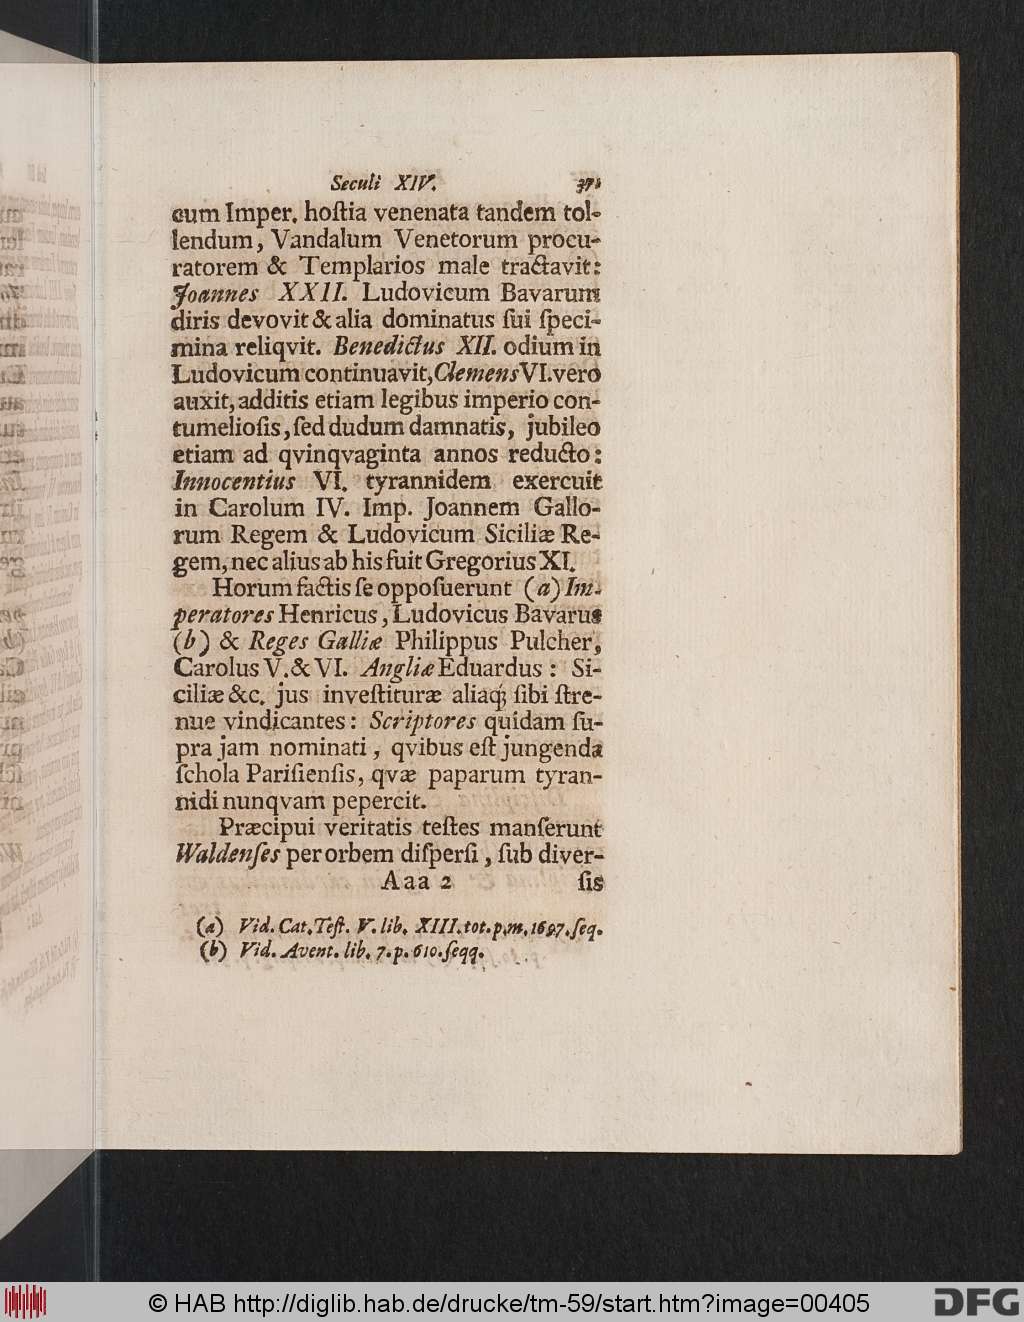 Seculi XIV. 371
cum Imper. hoſtia venenata tandem tol-
lendum, Vandalum Venetorum procu-
ratorem & Templarios male tractavit:
Joannes XXII. Ludovicum Bavarum
diris devovit & alia dominatus ſui ſpeci-
mina reliqvit. Benedictus XII. odium in
Ludovicum continuavit, Clemens VI. vero
auxit, additis etiam legibus imperio con-
tumelioſis, ſed dudum damnatis, jubileo
etiam ad qvinqvaginta annos reducto:
Innocentius VI. tyrannidem exercuit
in Carolum IV. Imp. Joannem Gallo-
rum Regem & Ludovicum Siciliæ Re-
gem, nec alius ab his fuit Gregorius XI.
Horum factis ſe oppoſuerunt (a) Im-
peratores Henricus, Ludovicus Bavarus
(b) & Reges Galliæ Philippus Pulcher,
Carolus V. & VI. Angliæ Eduardus: Si-
ciliæ &c. jus inveſtituræ aliaq; ſibi ſtre-
nue vindicantes: Scriptores quidam ſu-
pra jam nominati, qvibus eſt jungenda
ſchola Pariſienſis, qvæ paparum tyran-
nidi nunqvam pepercit.
Præcipui veritatis teſtes manſerunt
Waldenſes per orbem diſperſi, ſub diver-
Aaa 2 ſis
(a) Vid. Cat. Teſt. V. lib. XIII. tot. p. m. 1697. ſeq.
(b) Vid. Avent. lib. 7. p. 610. ſeqq.
© HAB http://diglib.hab.de/drucke/tm-59/start.htm?image=00405
DFG